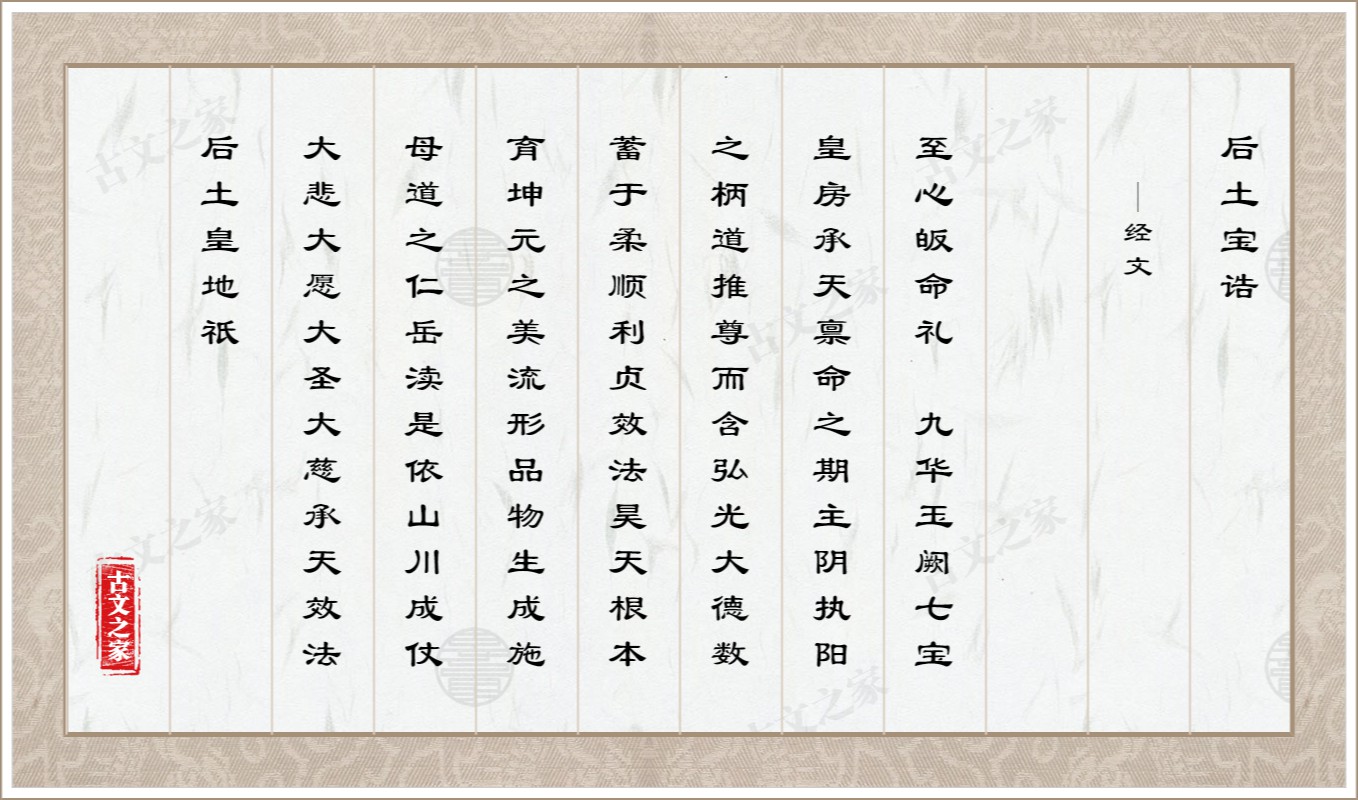 后土宝诰
——经文
至心皈命礼　九华玉阙七宝
皇房承天禀命之期主阴执阳
之柄道推尊而含弘光大德数
蓄于柔顺利贞效法昊天根本
育坤元之美流形品物生成施
母道之仁岳渎是依山川成仗
大悲大愿大圣大慈承天效法
后土皇地祇
古文之家